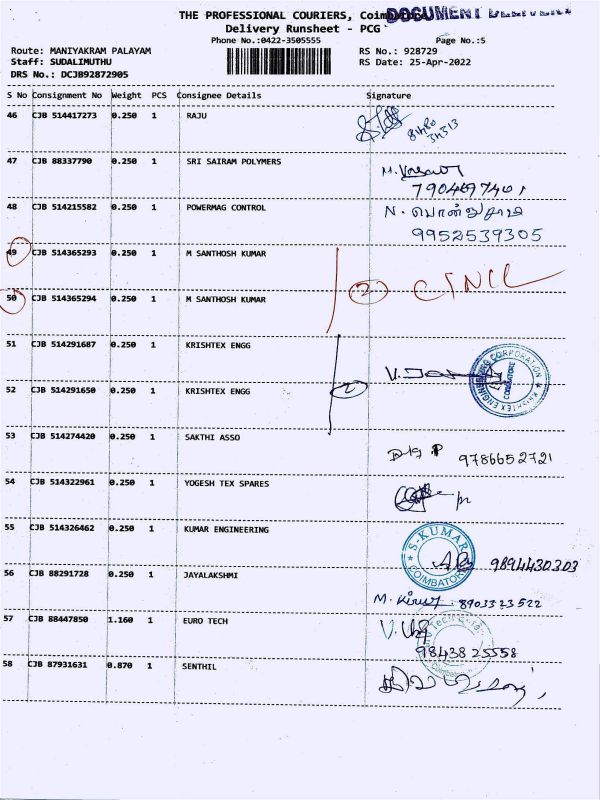 THE PROFESSIONAL COURIERS, Coimbatore
DOCUMENT DELIVERY
Delivery Runsheet - PCG
Phone No.:0422-3505555
Page No.:5
Route: MANIYAKRAM PALAYAM
RS No.: 928729
Staff: SUDALIMUTHU
RS Date: 25-Apr-2022
DRS No.: DCJB92872905
S No Consignment No Weight PCS Consignee Details Signature
46 CJB 514417273 0.250 1 RAJU
47 CJB 88337790 0.250 1 SRI SAIRAM POLYMERS
48 CJB 514215582 0.250 1 POWERMAG CONTROL N. பொன்னுசாமி
9952539305
49 CJB 514365293 0.250 1 M SANTHOSH KUMAR
2
50 CJB 514365294 0.250 1 M SANTHOSH KUMAR
51 CJB 514291687 0.250 1 KRISHTEX ENGG
KRISHTEX ENGINEERING CORPORATION
COIMBATORE
2
52 CJB 514291650 0.250 1 KRISHTEX ENGG
53 CJB 514274420 0.250 1 SAKTHI ASSO 9786652721
54 CJB 514322961 0.250 1 YOGESH TEX SPARES
55 CJB 514326462 0.250 1 KUMAR ENGINEERING
S-KUMAR
COIMBATORE
9894430303
56 CJB 88291728 0.250 1 JAYALAKSHMI
M. 8903323522
57 CJB 88447850 1.160 1 EURO TECH
98438 25558
58 CJB 87931631 0.870 1 SENTHIL